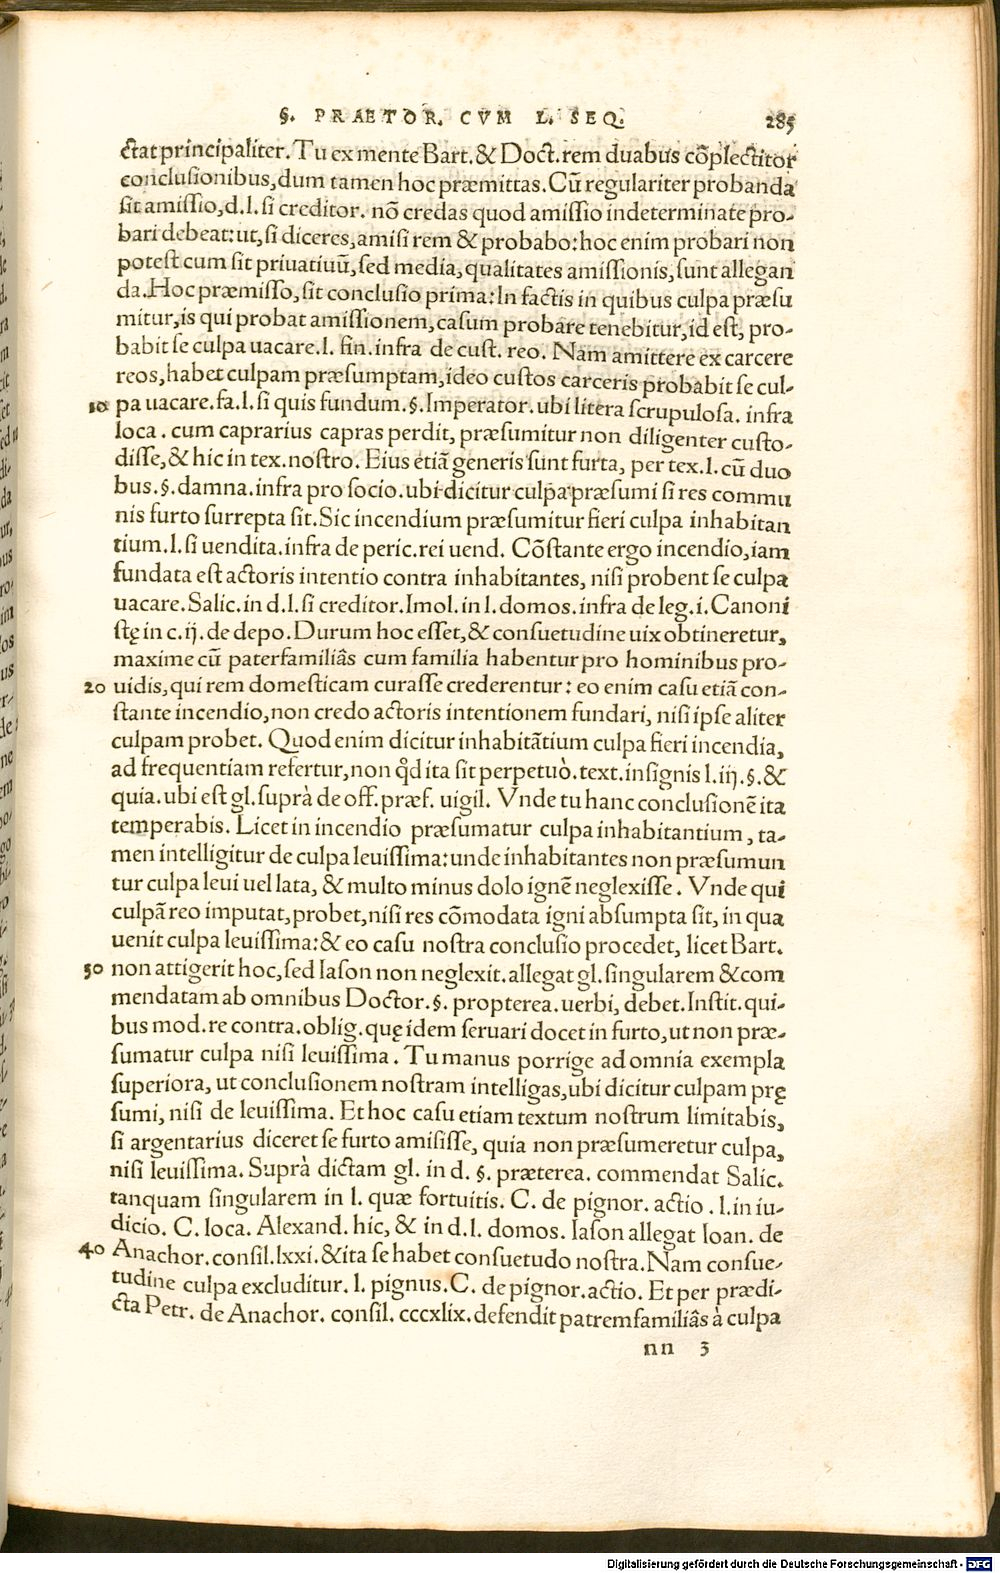 §. PRAETOR. CVM L. SEQ. 285
ctat principaliter. Tu ex mente Bart. & Doct. rem duabus cõplectitor
conclusionibus, dum tamen hoc præmittas. Cũ regulariter probanda
sit amissio, d. l. si creditor. nõ credas quod amissio indeterminate pro-
bari debeat: ut, si diceres, amisi rem & probabo: hoc enim probari non
potest cum sit priuatiuũ, sed media, qualitates amissionis, sunt allegan
da. Hoc præmisso, sit conclusio prima: In factis in quibus culpa præsu
mitur, is qui probat amissionem, casum probare tenebitur, id est, pro-
babit se culpa uacare. l. fin. infra de cust. reo. Nam amittere ex carcere
reos, habet culpam præsumptam, ideo custos carceris probabit se cul-
10 pa uacare. fa. l. si quis fundum. §. Imperator. ubi litera scrupulosa. infra
loca. cum caprarius capras perdit, præsumitur non diligenter custo-
disse, & hic in tex. nostro. Eius etiã generis sunt furta, per tex. l. cũ duo
bus. §. damna. infra pro socio. ubi dicitur culpa præsumi si res commu
nis furto surrepta sit. Sic incendium præsumitur fieri culpa inhabitan
tium. l. si uendita. infra de peric. rei uend. Cõstante ergo incendio, iam
fundata est actoris intentio contra inhabitantes, nisi probent se culpa
uacare. Salic. in d. l. si creditor. Imol. in l. domos. infra de leg. i. Canoni
stę in c. ij. de depo. Durum hoc esset, & consuetudine uix obtineretur,
maxime cũ paterfamiliâs cum familia habentur pro hominibus pro-
20 uidis, qui rem domesticam curasse crederentur: eo enim casu etiã con-
stante incendio, non credo actoris intentionem fundari, nisi ipse aliter
culpam probet. Quod enim dicitur inhabitãtium culpa fieri incendia,
ad frequentiam refertur, non qd̃ ita sit perpetuò. text. insignis l. iij. §. &
quia. ubi est gl. suprà de off. præf. uigil. Vnde tu hanc conclusionẽ ita
temperabis. Licet in incendio præsumatur culpa inhabitantium, ta-
men intelligitur de culpa leuissima: unde inhabitantes non præsumun
tur culpa leui uel lata, & multo minus dolo ignẽ neglexisse. Vnde qui
culpã reo imputat, probet, nisi res cõmodata igni absumpta sit, in qua
uenit culpa leuissima: & eo casu nostra conclusio procedet, licet Bart.
30 non attigerit hoc, sed Iason non neglexit. allegat gl. singularem & com
mendatam ab omnibus Doctor. §. propterea. uerbi, debet. Instit. qui-
bus mod. re contra. oblig. quę idem seruari docet in furto, ut non præ-
sumatur culpa nisi leuissima. Tu manus porrige ad omnia exempla
superiora, ut conclusionem nostram intelligas, ubi dicitur culpam prę
sumi, nisi de leuissima. Et hoc casu etiam textum nostrum limitabis,
si argentarius diceret se furto amisisse, quia non præsumeretur culpa,
nisi leuissima. Suprà dictam gl. in d. §. præterea. commendat Salic.
tanquam singularem in l. quæ fortuitis. C. de pignor. actio. l. in iu-
dicio. C. loca. Alexand. hic, & in d. l. domos. Iason allegat Ioan. de
40 Anachor. consil. lxxi. & ita se habet consuetudo nostra. Nam consue-
tudine culpa excluditur. l. pignus. C. de pignor. actio. Et per prædi-
cta Petr. de Anachor. consil. cccxlix. defendit patremfamiliâs à culpa
nn 3
Digitalisierung gefördert durch die Deutsche Forschungsgemeinschaft - DFG